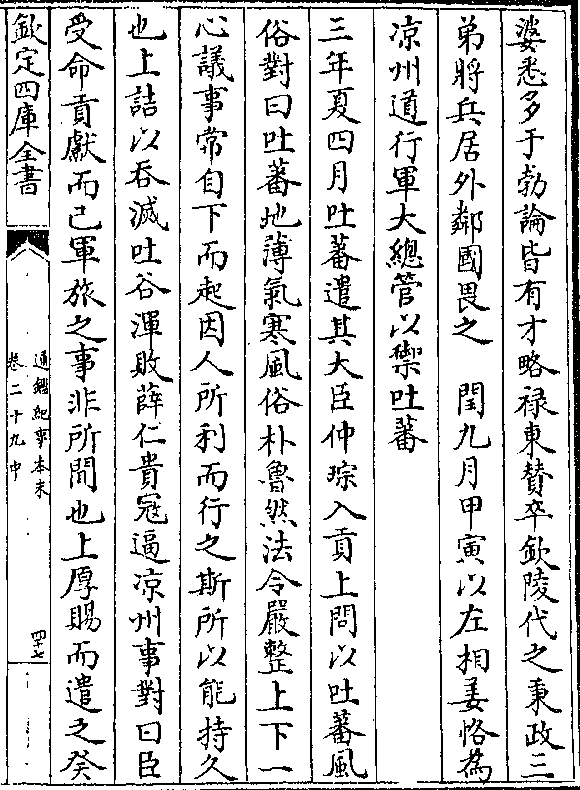 婆悉多于勃論皆有才略禄東贊卒欽陵代之秉政三
弟將兵居外鄰國畏之　閏九月甲寅以左相姜恪為
凉州道行軍大總管以禦吐蕃
三年夏四月吐蕃遣其大臣仲琮入貢上問以吐蕃風
俗對曰吐蕃地薄氣寒風俗朴魯然法令嚴整上下一
心議事常自下而起因人所利而行之斯所以能持久
也上詰以吞滅吐谷渾敗薛仁貴冦逼凉州事對曰臣
受命貢獻而已軍旅之事非所聞也上厚賜而遣之癸
欽定四庫全書
通鑑紀事本末
卷二十九中
四十七